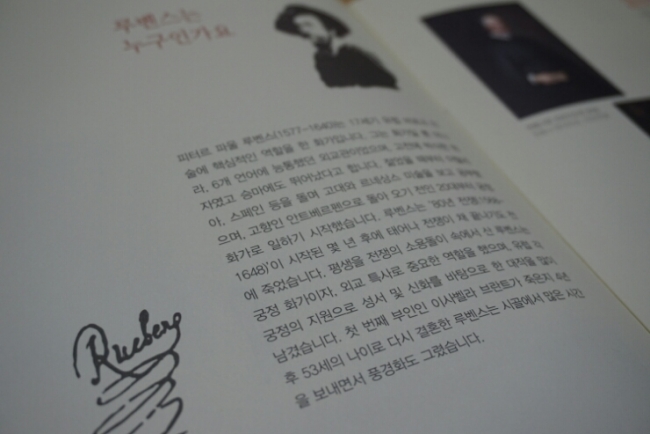 루벤스는
누구인가요
피터르 파울 루벤스(1577~1640)는 17세기 유럽
술에 핵심적인 역할을 한 화가입니다. 그는 화가일 뿐
라, 6개 언어에 능통했던 외교관이었으며, 고전에
자였고 승마에도 뛰어났다고 합니다.
아, 스페인 등을 돌며 고대와 르네상스 미술을 보고,
으며, 고향인 안트베르펜으로 돌아 오기 전인 20대부터
화가로 일하기 시작했습니다. 루벤스는, '80년 전쟁(1568~
1648)'이 시작된 몇 년 후에 태어나 전쟁이 채 끝나기도 전
에 죽었습니다. 평생을 전쟁의 소용돌이 속에서 산 루벤스는
궁정 화가이자, 외교 특사로 중요한 역할을 했으며, 유럽 각
궁정의 지원으로 성서 및 신화를 바탕으로 한 대작을 많이
남겼습니다. 첫 번째 부인인 이사벨라 브란트가 죽은지 4년
후 53세의 나이로 다시 결혼한 루벤스는 시골에서 많은 시간
을 보내면서 풍경화도 그렸습니다.